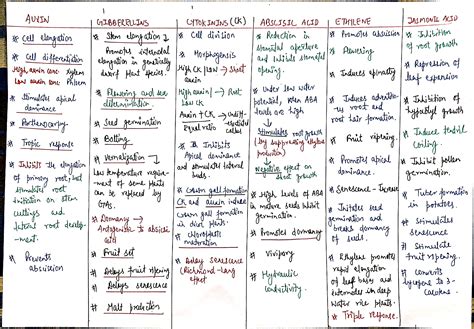 AUXIN
* Cell elongation
* Cell differentiation
High auxin conc Xylem
Low auxin conc Phloem
* Stimulates apical
dominance
* Parthenocarpy
* Tropic response
* Inhibits the elongation
of primary root, but
stimulate root
initiation on stem
cuttings and
lateral root develop-
ment.
* Prevents
abscission
GIBBERELLINS
* Stem elongation
Promotes internodal
elongation in genetically
dwarf plant species.
* Flowering and sex
determination
* Seed germination
* Bolting
* Vernalisation
Low temperature require-
ment of some plants
can be replaced by
GAs
* Dormancy →
Antagonistic to abscisic
acid
* Fruit set
* Delays fruit ripening
* Delays senescence
* Malt production
CYTOKININS (CK)
* Cell division
* Morphogenesis
High CK / Low → Shoot
auxin
High auxin / → Root
Low CK
Auxin + CK →
Equal ratio
* Inhibits
Apical dominance and
stimulated lateral
buds.
* Crown gall formation
CK and auxin induce
crown gall formation
in dicot plants.
* chloroplasts
maturation
* Delay senescence
(Richmond-Lang
effect)
ABSCISIC ACID
* Reduction in
stomatal aperture
and inhibits stomatal
opening.
* Under low water
potential, when ABA
levels are high
↓
Stimulates root growth
(by suppressing ethylene
production)
→
Negative effect on
shoot growth
* High levels of ABA
in mature seeds inhibit
germination.
* Promotes dormancy
* Vivipary
* Hydraulic
conductivity.
ETHYLENE
* Promotes abscission
* Flowering
* Induces epinasty
* Induces adventitious
root and root
hair formation.
* Fruit ripening
* Promotes apical
dominance.
* Senescence - Increase
* Initiates seed
germination and
breaks dormancy of
seeds.
* Ethylene promotes
rapid elongation
of leaf bases and
internodes in deep
water rice plants
* Triple response.
JASMONIC ACID
* Inhibition
of root growth
* Repression of
leaf expansion
* Inhibition of
hypocotyl growth
* Induces tendril
coiling.
* Inhibit pollen
germination.
* Tuber formation
in potatoes.
* Stimulates
senescence
* Stimulate
fruit ripening.
* Converts
lycopene to β-
carotenes